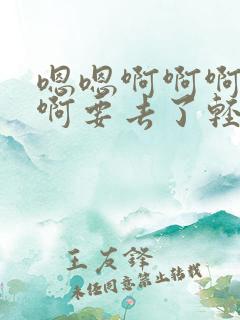 嗯嗯啊啊啊
啊要去了轻
王友锋
未经同意禁止转载